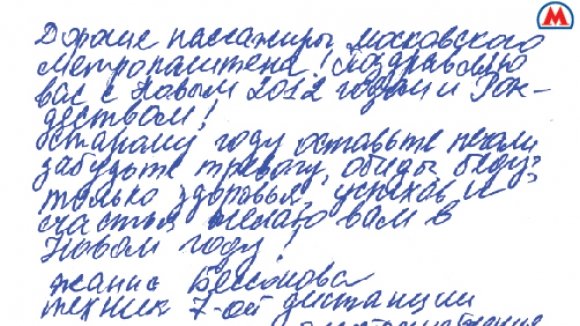 М
Дорогие пассажиры московского
метрополитена! Поздравляю
вас с Новым 2012 годом и Рож-
деством!
Старому году оставьте печали
забудьте тревогу, обиды, беду,
только здоровья, успехов и
счастья желаю вам в
Новом году!
техник 7-ой дистанции